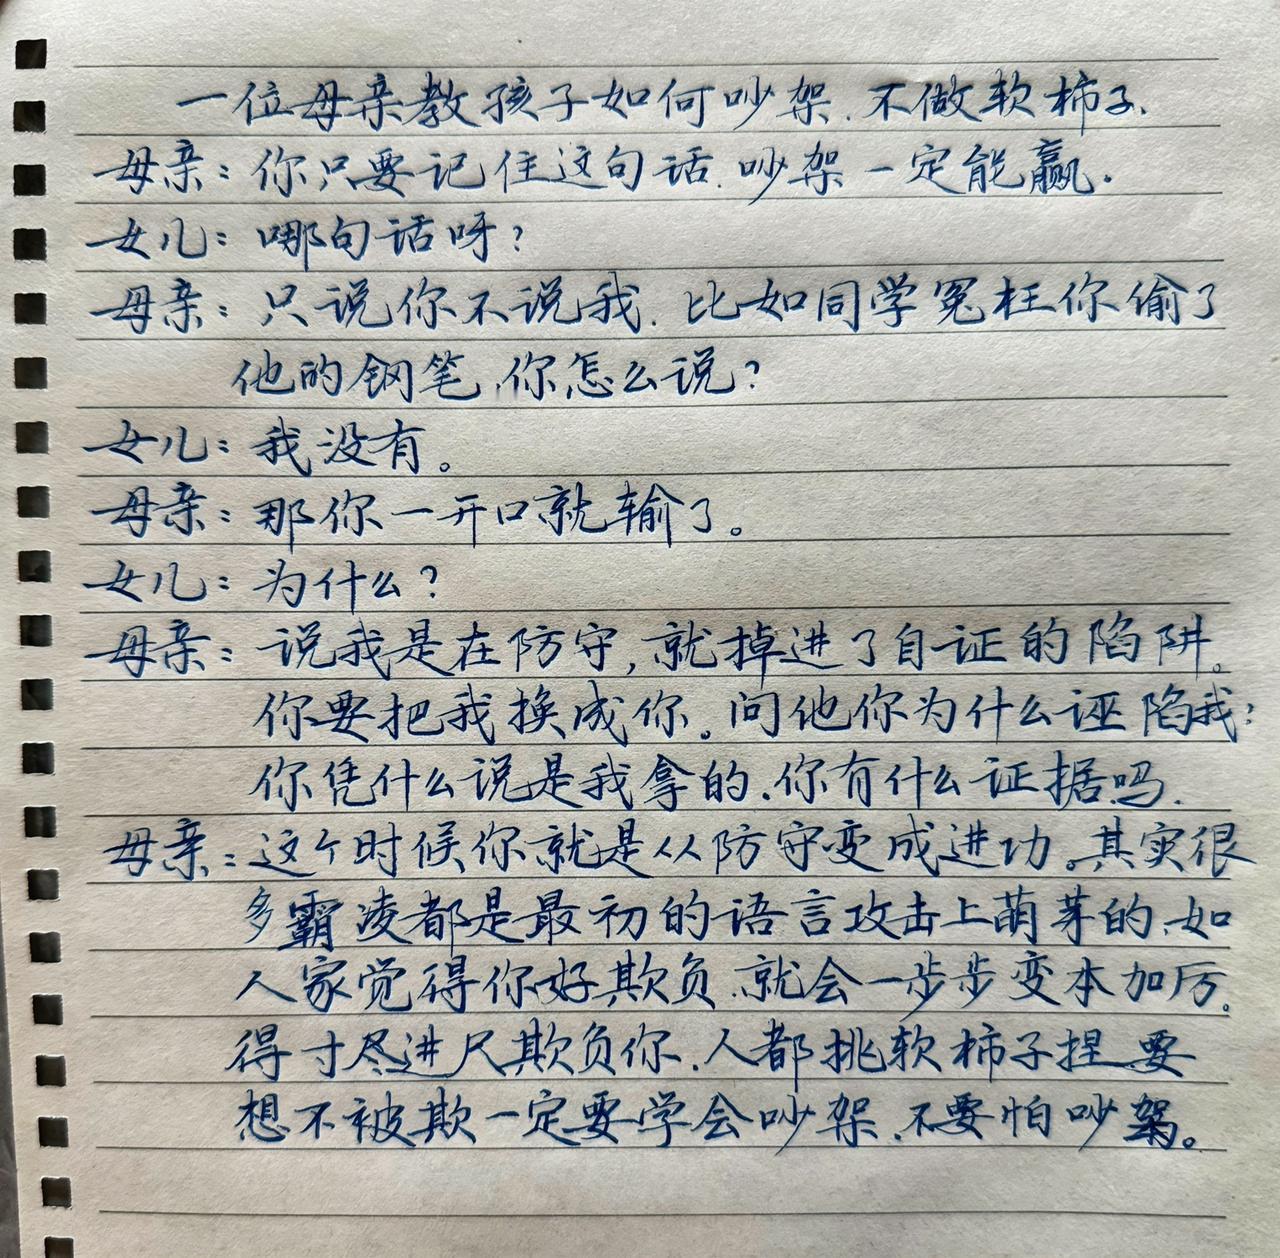 一位母亲教孩子如何吵架.不做软柿子.
母亲：你只要记住这句话.吵架一定能赢.
女儿：哪句话呀？
母亲：只说你不说我.比如同学冤枉你偷了
他的钢笔,你怎么说？
女儿：我没有。
母亲：那你一开口就输了。
女儿：为什么？
母亲：说我是在防守,就掉进了自证的陷阱。
你要把我换成你。问他你为什么诬陷我?
你凭什么说是我拿的.你有什么证据吗.
母亲：这个时候你就是从防守变成进功。其实很
多霸凌都是最初的语言攻击上萌芽的.如
人家觉得你好欺负.就会一步步变本加厉。
得寸尽进尺欺负你.人都挑软柿子捏.要
想不被欺一定要学会吵架.不要怕吵架。